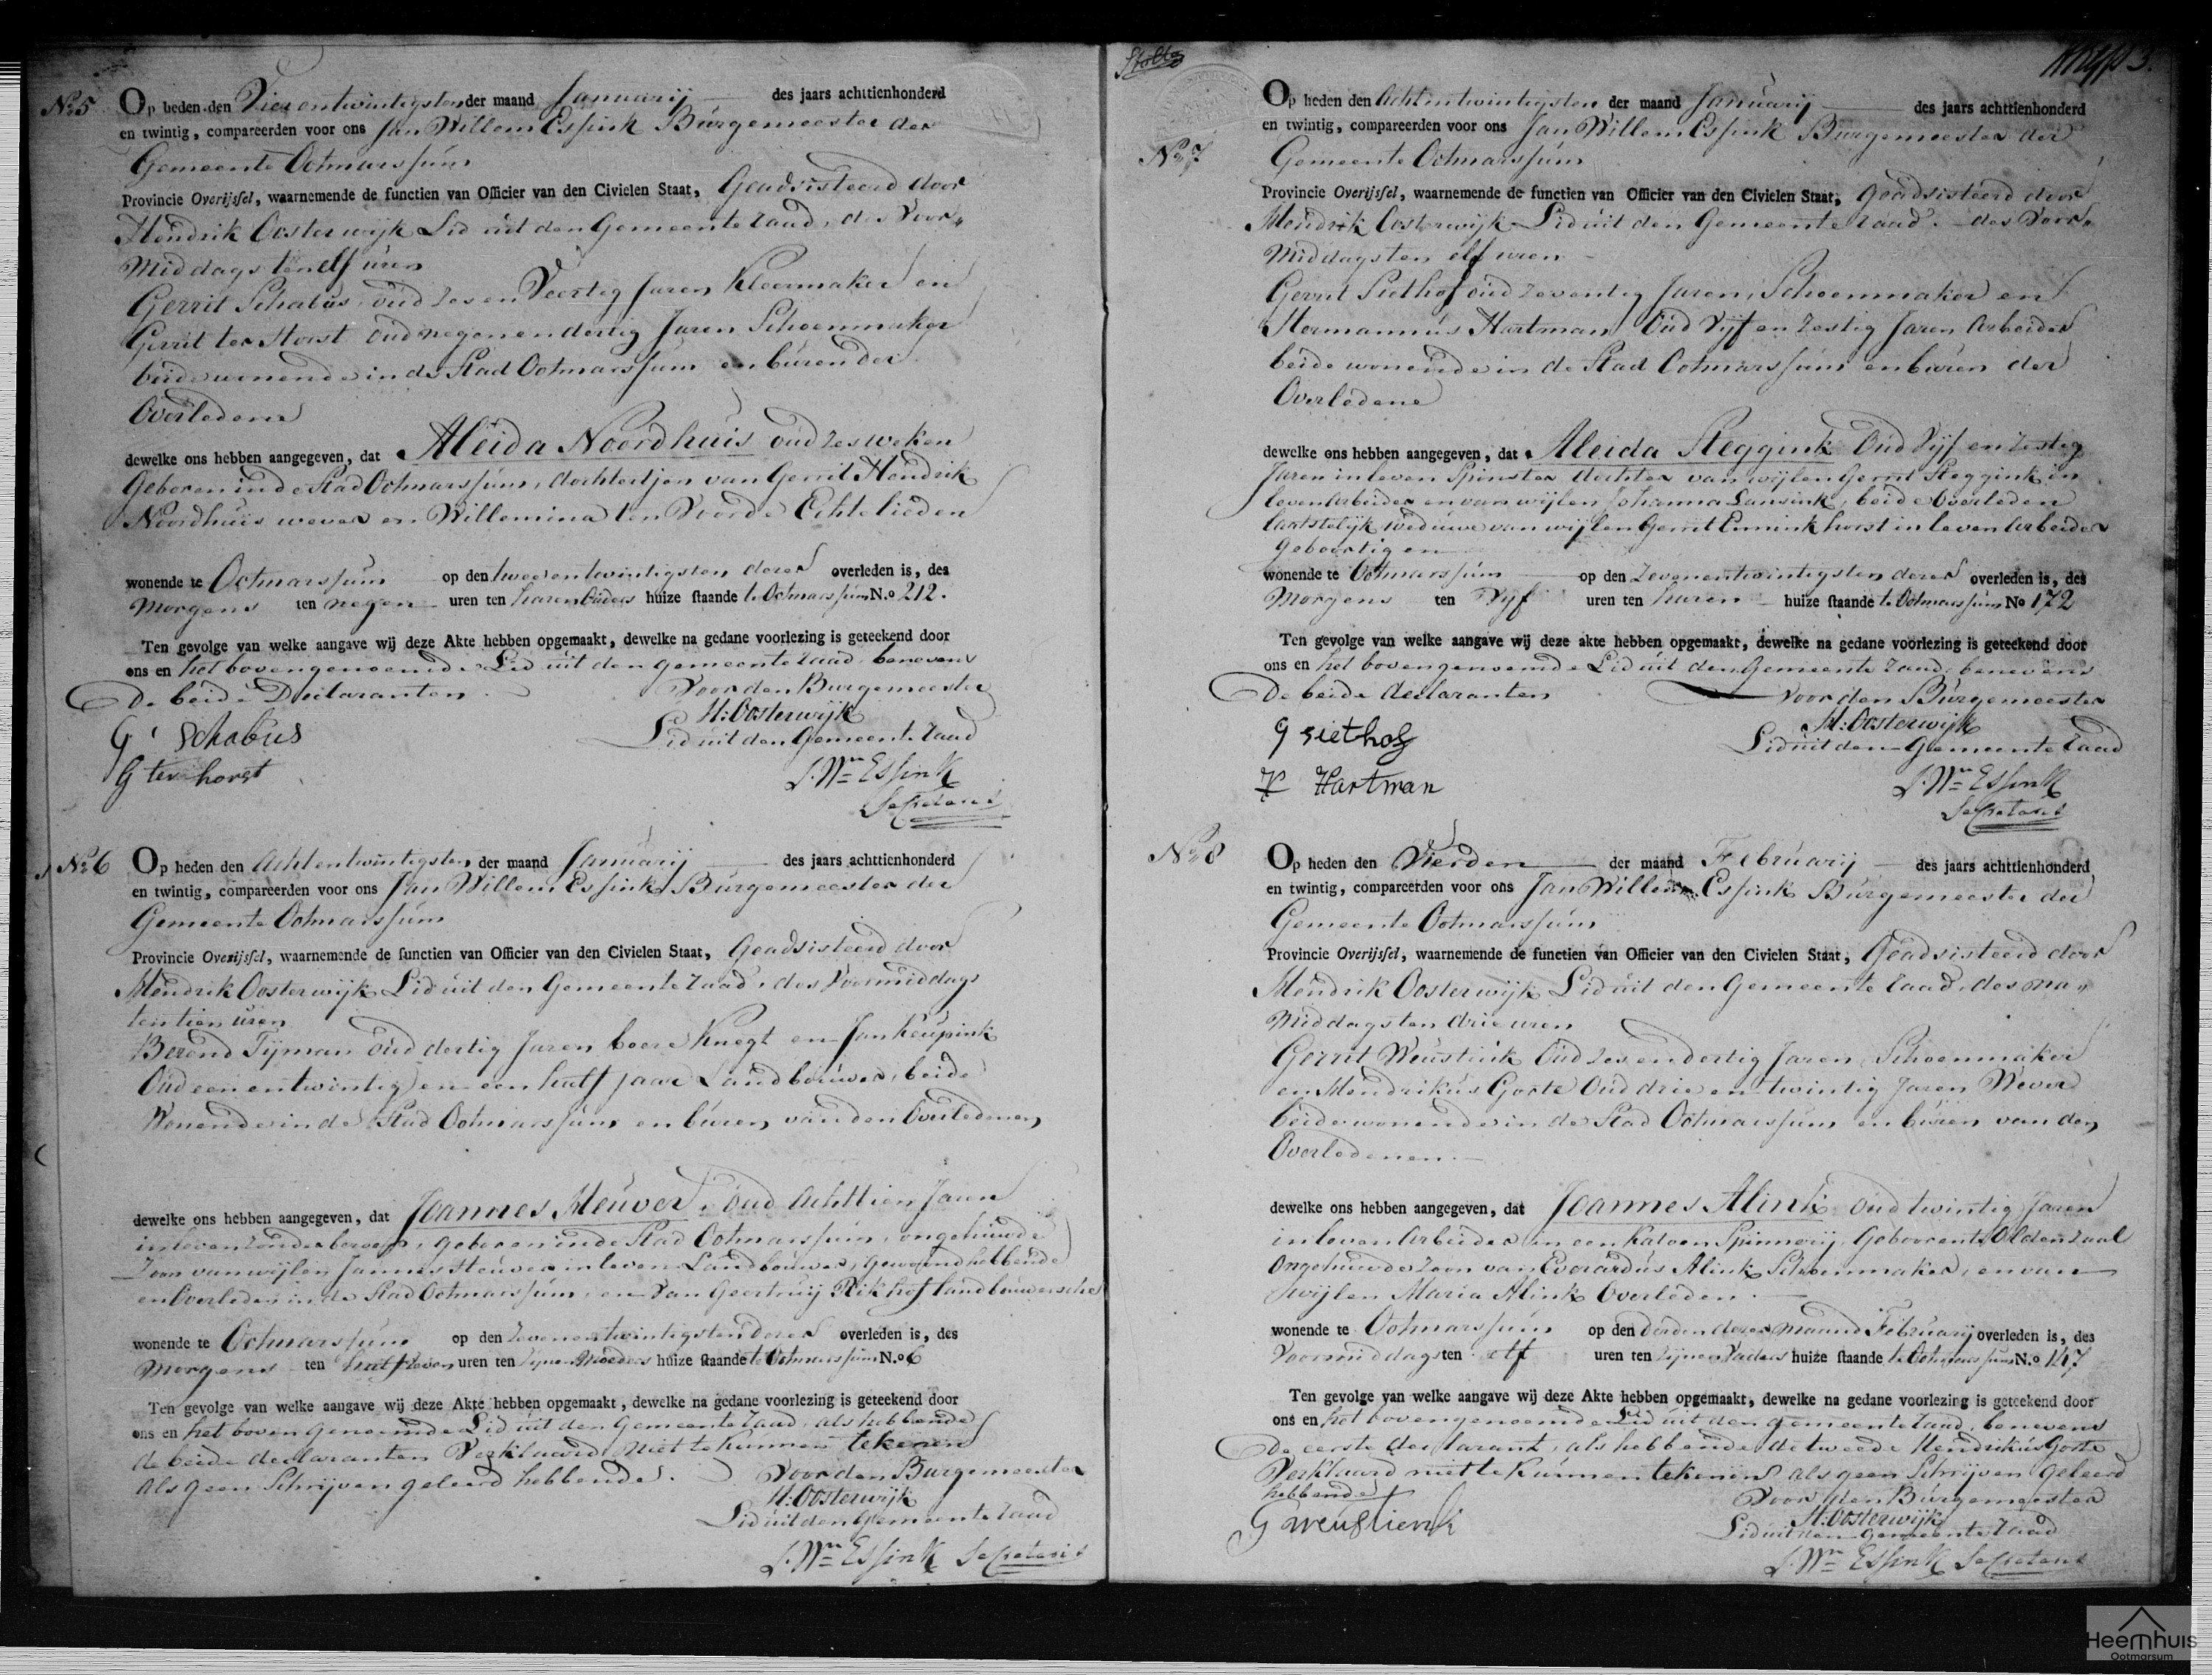 No. 5
Op heden den Vierentwintigsten der maand Januarij des jaars achttienhonderd
en twintig, compareerden voor ons Jan Willem Essink Burgemeester der
Gemeente Ootmarssum
Provincie Overijssel, waarnemende de functien van Officier van den Civielen Staat, Geadsisteerd door
Hendrik Oosterwijk Lid uit den Gemeente raad, des Voor„
Middags ten elf uren
Gerrit Schabus oud zes en Veertig Jaren Kleermaker en
Gerrit ter Horst oud negen en dertig Jaren Schoenmaker
beide wonende in de Stad Ootmarssum en buren der
Overledene
dewelke ons hebben aangegeven, dat Aleida Noordhuis oud zes weken
Geboren in de Stad Ootmarssum, dochtertjen van Gerrit Hendrik
Noordhuis wever en Willemina ten Voorde Echtelieden
wonende te Ootmarssum op den tweeentwintigsten dezer overleden is, des
Morgens ten negen uren ten haren Ouders huize staande te Ootmarssum N.o 212.
Ten gevolge van welke aangave wij deze Akte hebben opgemaakt, dewelke na gedane voorlezing is geteekend door
ons en het bovengenoemde Lid uit den gemeente raad, benevens
De beide Declaranten
Voor den Burgemeester
H: Oosterwijk
Lid uit den Gemeente raad
G Schabus
G ter horst
J. Wm Essink
Secretaris
No. 6
Op heden den Achtentwintigsten der maand Januarij des jaars achttienhonderd
en twintig, compareerden voor ons Jan Willem Essink Burgemeester der
Gemeente Ootmarssum
Provincie Overijssel, waarnemende de functien van Officier van den Civielen Staat, Geadsisteerd door
Hendrik Oosterwijk Lid uit den Gemeente raad, des Voormiddags
ten tien uren
Berend Tijman oud dertig Jaren boere Knegt en Jan Keupink
Oud een en twintig en een half jaar Landbouwer, beide
Wonende in de Stad Ootmarssum en buren van den Overledenen
dewelke ons hebben aangegeven, dat Joannes Meuver, oud Achttien Jaren
in leven zonder beroep, geboren in de Stad Ootmarssum, ongehuwde
Zoon van wijlen Jannes Meuver in leven Landbouwer, gewoond hebbende
en Overleden in de Stad Ootmarssum, en Van Geertruij Rikhof landbouwersche
wonende te Ootmarssum op den Zevenentwintigsten dezer overleden is, des
Morgens ten half zeven uren ten zijner Moeders huize staande te Ootmarssum N.o 6
Ten gevolge van welke aangave wij deze Akte hebben opgemaakt, dewelke na gedane voorlezing is geteekend door
ons en het boven genoemde Lid uit den Gemeente raad, als hebbende
de beide declaranten Verklaard niet te kunnen tekenen
als geen Schrijven geleerd hebbende.
Voor den Burgemeester
H: Oosterwijk
Lid uit den Gemeente raad
J. Wm Essink Secretaris
No. 7
Op heden den Achtentwintigsten der maand Januarij des jaars achttienhonderd
en twintig, compareerden voor ons Jan Willem Essink Burgemeester der
Gemeente Ootmarssum
Provincie Overijssel, waarnemende de functien van Officier van den Civielen Staat, Geadsisteerd door
Hendrik Oosterwijk Lid uit den Gemeente raad. des Voor„
Middags ten elf uren
Gerrit Siethof oud zeventig Jaren, Schoenmaker en
Hermannus Hartman Oud Vijf en Zestig Jaren Arbeider
beide wonende in de Stad Ootmarssum en buren der
Overledene
dewelke ons hebben aangegeven, dat Aleida Steggink Oud Vijf en Zestig
Jaren in leven Spinster dochter van wijlen Gerrit Steggink in
leven Arbeider en van wijlen Johanna Lansink, beide Overleden
laatstelijk Weduwe van wijlen Gerrit Ennink horst in leven Arbeider
Geboortig en
wonende te Ootmarssum op den Zevenentwintigsten dezer overleden is, des
Morgens ten Vijf uren ten haren huize staande te Ootmarssum No 172
Ten gevolge van welke aangave wij deze akte hebben opgemaakt, dewelke na gedane voorlezing is geteekend door
ons en het bovengenoemde Lid uit den Gemeente raad, benevens
De beide declaranten
Voor den Burgemeester
H: Oosterwijk
Lid uit den Gemeente raad
G siethof
H Hartman
J. Wm Essink
Secretaris
No. 8
Op heden den Vierden der maand Februarij des jaars achttienhonderd
en twintig, compareerden voor ons Jan Willem Essink Burgemeester der
Gemeente Ootmarssum
Provincie Overijssel, waarnemende de functien van Officier van den Civielen Staat, Geadsisteerd door
Hendrik Oosterwijk Lid uit den Gemeente raad, des na„
Middags ten drie uren
Gerrit Weustink Oud zes en dertig Jaren, Schoenmaker
en Hendrikus Gorte Oud drie en twintig Jaren Wever
beide wonende in de Stad Ootmarssum en buren van den
Overledenen.
dewelke ons hebben aangegeven, dat Joannes Alink oud twintig Jaren
in leven Arbeider in een Katoen Spinnerij, Geboren te Oldenzaal
Ongehuwde Zoon van Everardus Alink Schoenmaker, en van
wijlen Maria Alink Overleden.
wonende te Ootmarssum op den derden dezer maand Februarij overleden is, des
Voormiddags ten elf uren ten zijner Vaders huize staande te Ootmarssum N.o 147
Ten gevolge van welke aangave wij deze Akte hebben opgemaakt, dewelke na gedane voorlezing is geteekend door
ons en het bovengenoemde Lid uit den gemeente raad, benevens
De eerste declarant, als hebbende de tweede Hendrikus Gorte
Verklaard niet te kunnen tekenen als geen Schrijven geleerd
hebbende
Voor den Burgemeester
H: Oosterwijk
Lid uit den Gemeente raad
G weustienk
J. Wm Essink Secretaris
Heemhuis
Ootmarsum